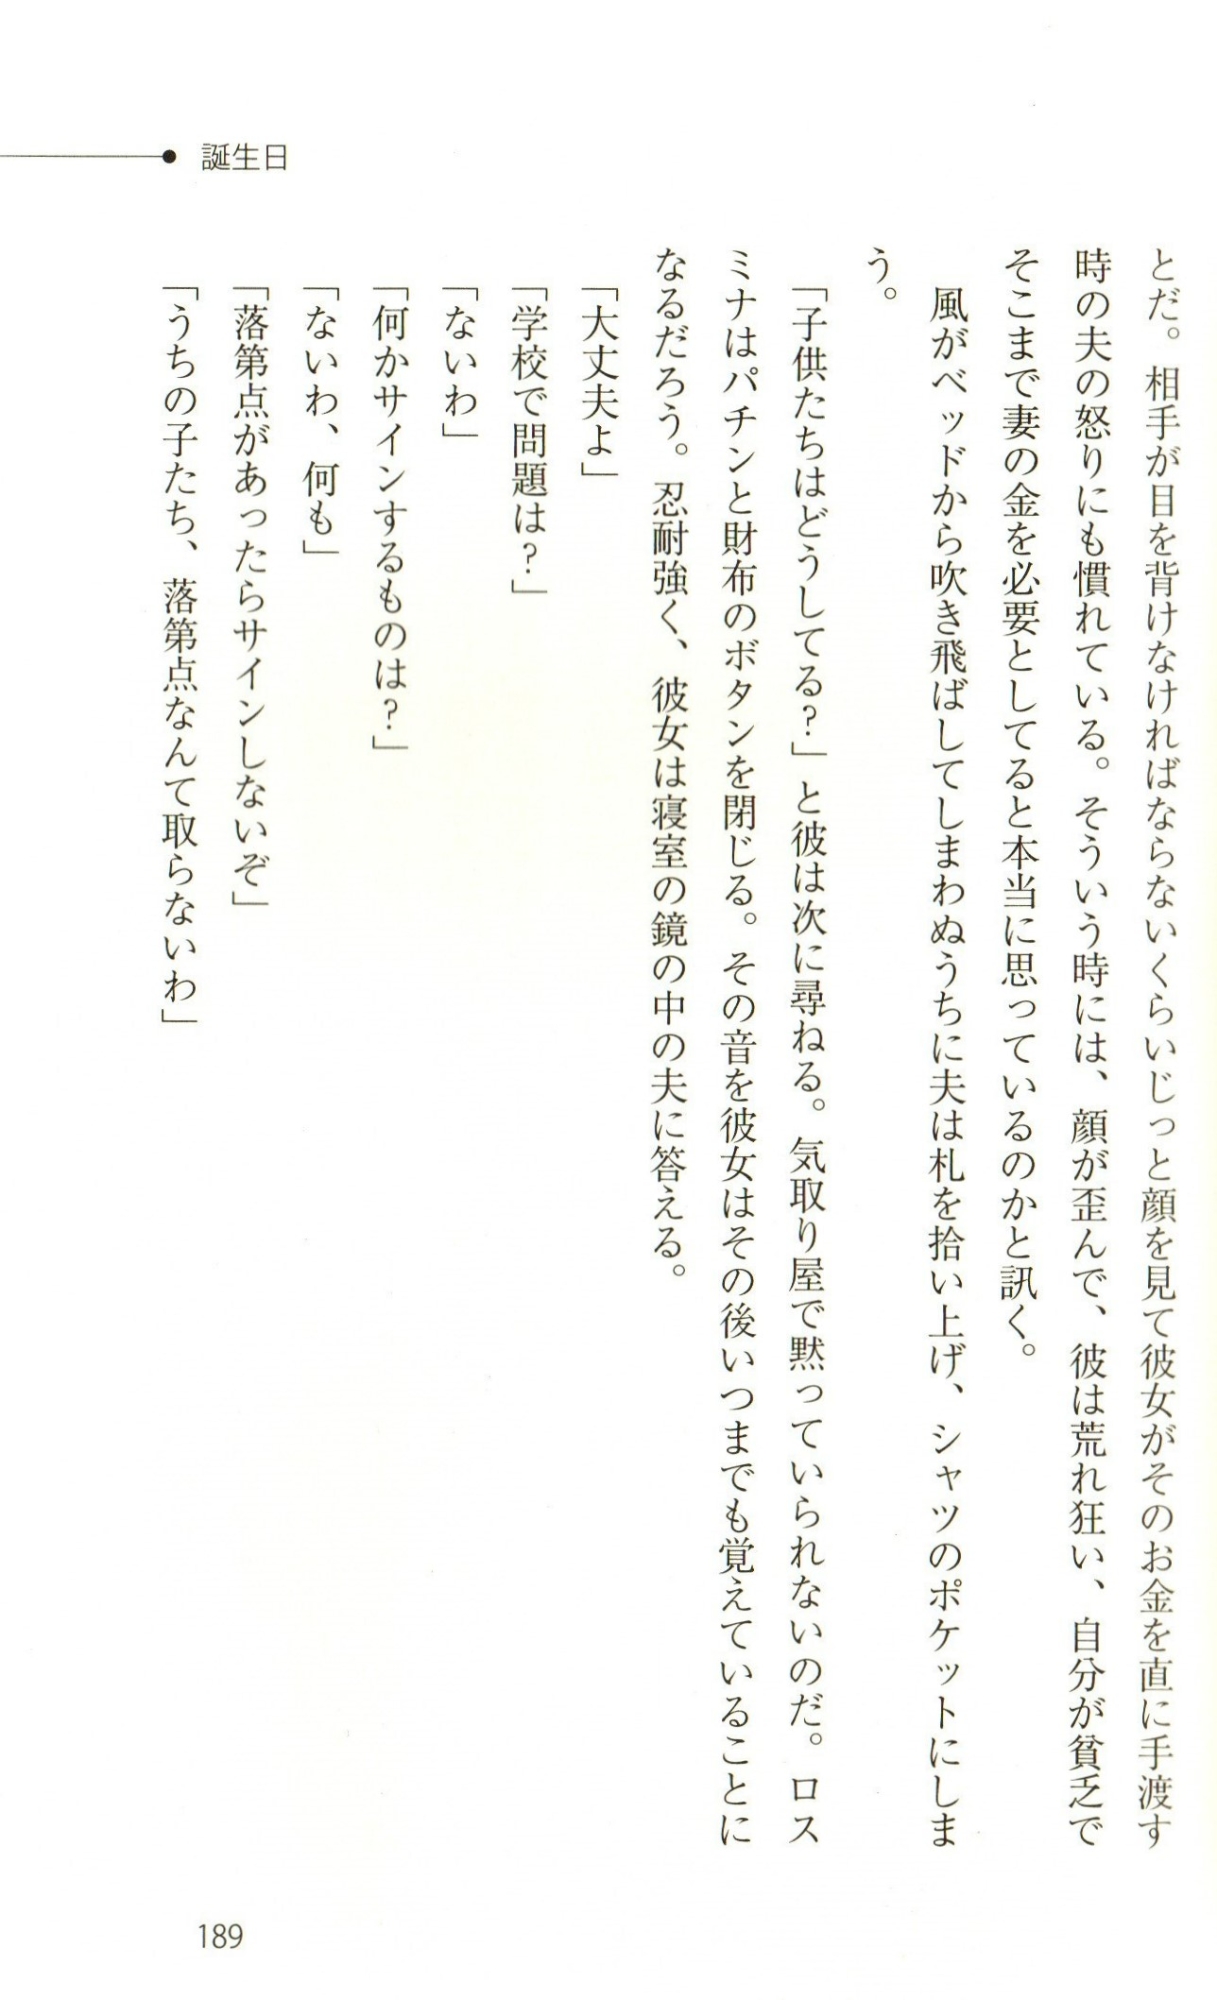 誕生日
とだ。相手が目を背けなければならないくらいじっと顔を見て彼女がそのお金を直に手渡す
時の夫の怒りにも慣れている。そういう時には、顔が歪んで、彼は荒れ狂い、自分が貧乏で
そこまで妻の金を必要としてると本当に思っているのかと訊く。
　風がベッドから吹き飛ばしてしまわぬうちに夫は札を拾い上げ、シャツのポケットにしま
う。
「子供たちはどうしてる?」と彼は次に尋ねる。気取り屋で黙っていられないのだ。ロス
ミナはパチンと財布のボタンを閉じる。その音を彼女はその後いつまでも覚えていることに
なるだろう。忍耐強く、彼女は寝室の鏡の中の夫に答える。
「大丈夫よ」
「学校で問題は?」
「ないわ」
「何かサインするものは?」
「ないわ、何も」
「落第点があったらサインしないぞ」
「うちの子たち、落第点なんて取らないわ」
189